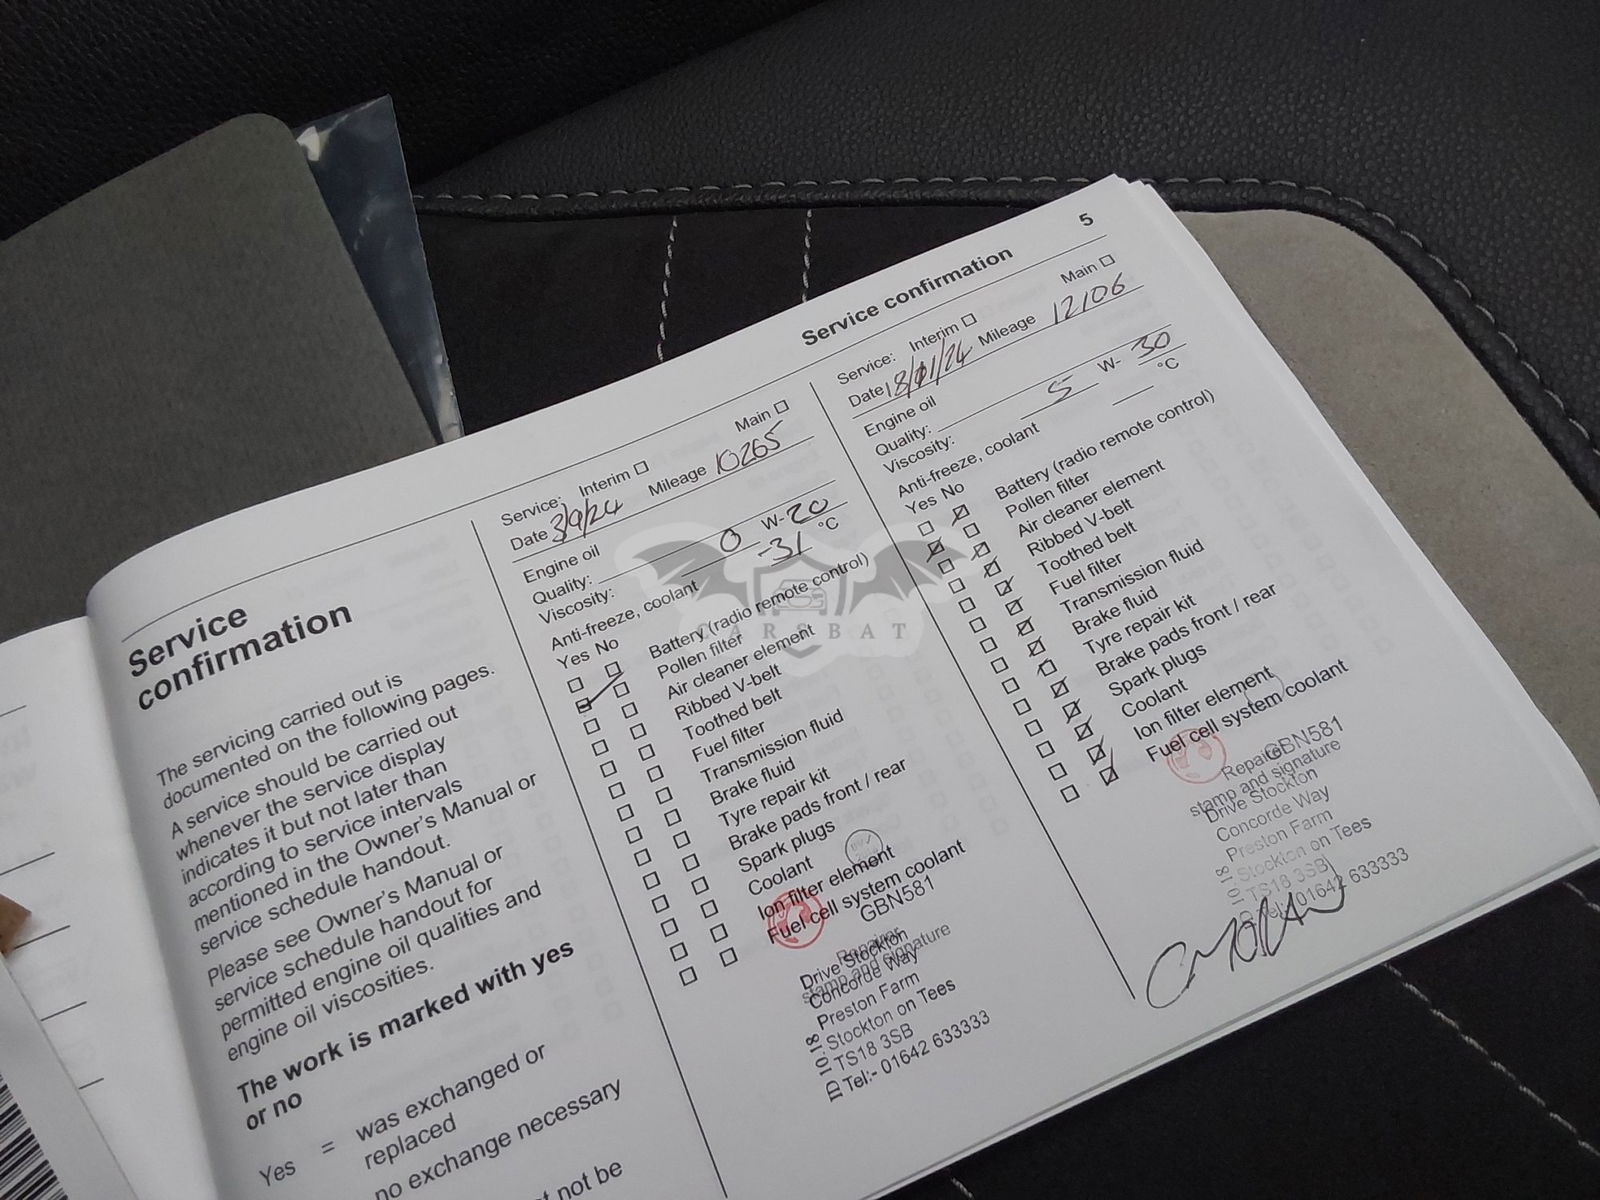 5
Service confirmation
Service
confirmation
The servicing carried out is
documented on the following pages.
A service should be carried out
whenever the service display
indicates it but not later than
according to service intervals
mentioned in the Owner's Manual or
service schedule handout.
Please see Owner's Manual or
service schedule handout for
permitted engine oil qualities and
engine oil viscosities.
The work is marked with yes
or no
Yes = was exchanged or
replaced
no exchange necessary
not be
Service: Interim Main
Date 3/9/24 Mileage 10265
Engine oil
Quality:
Viscosity: 0 W- 20
Anti-freeze, coolant -31 °C
Yes No
Battery (radio remote control)
Pollen filter
Air cleaner element
Ribbed V-belt
Toothed belt
Fuel filter
Transmission fluid
Brake fluid
Tyre repair kit
Brake pads front / rear
Spark plugs
Coolant
Ion filter element
Fuel cell system coolant
GBN581
Repairer
stamp and signature
Drive Stockton
Concorde Way
Preston Farm
Stockton on Tees
TS18 3SB
Tel:- 01642 633333
ID 10.18
Service: Interim Main
Date 18/11/24 Mileage 12106
Engine oil
Quality:
Viscosity: 5 W- 30
Anti-freeze, coolant °C
Yes No
Battery (radio remote control)
Pollen filter
Air cleaner element
Ribbed V-belt
Toothed belt
Fuel filter
Transmission fluid
Brake fluid
Tyre repair kit
Brake pads front / rear
Spark plugs
Coolant
Ion filter element
Fuel cell system coolant
GBN581
Repairer
stamp and signature
Drive Stockton
Concorde Way
Preston Farm
Stockton on Tees
TS18 3SB
Tel:- 01642 633333
ID 10.18
CARSBAT